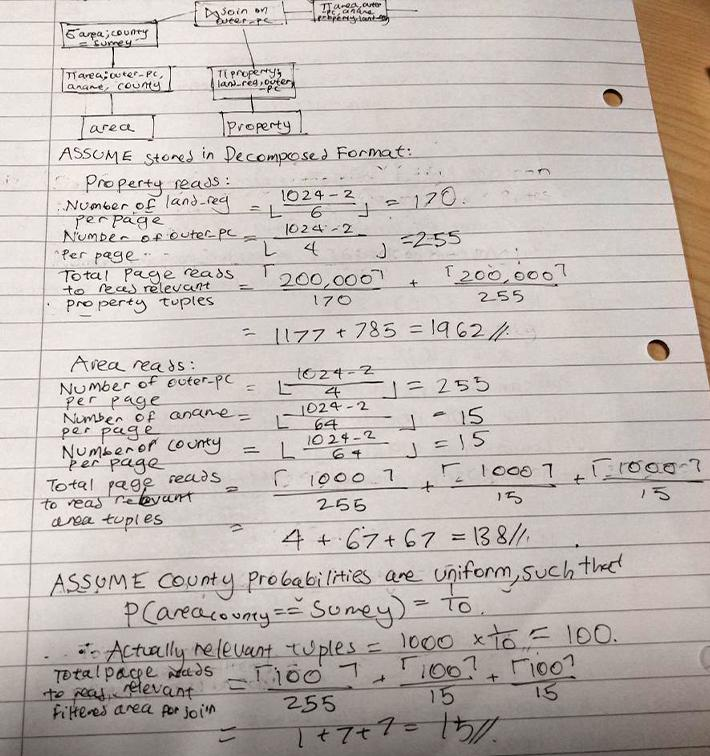 ⋈ join on
outer-pc
π area, outer
-pc, aname
property, land-reg
σ area; county
= surrey
π area; outer-pc,
aname, county
π property;
land-reg, outer
-pc
area
Property
ASSUME stored in Decomposed Format:
Property reads:
Number of land-reg per page = ⌊ 1024-2 / 6 ⌋ = 170.
Number of outer-pc per page = ⌊ 1024-2 / 4 ⌋ = 255
Total Page reads to read relevant property tuples = ⌈ 200,000 ⌉ / 170 + ⌈ 200,000 ⌉ / 255
= 1177 + 785 = 1962 //.
Area reads:
Number of outer-pc per page = ⌊ 1024-2 / 4 ⌋ = 255
Number of aname per page = ⌊ 1024-2 / 64 ⌋ = 15
Number of county per page = ⌊ 1024-2 / 64 ⌋ = 15
Total page reads to read relevant area tuples = ⌈ 1000 ⌉ / 255 + ⌈ 1000 ⌉ / 15 + ⌈ 1000 ⌉ / 15
= 4 + 67 + 67 = 138 //.
ASSUME County Probabilities are uniform, such that
P(area county == Surrey) = 1/10.
∴ Actually relevant tuples = 1000 × 1/10 = 100.
Total page reads to read relevant filtered area for join = ⌈ 100 ⌉ / 255 + ⌈ 100 ⌉ / 15 + ⌈ 100 ⌉ / 15
= 1 + 7 + 7 = 15 //.